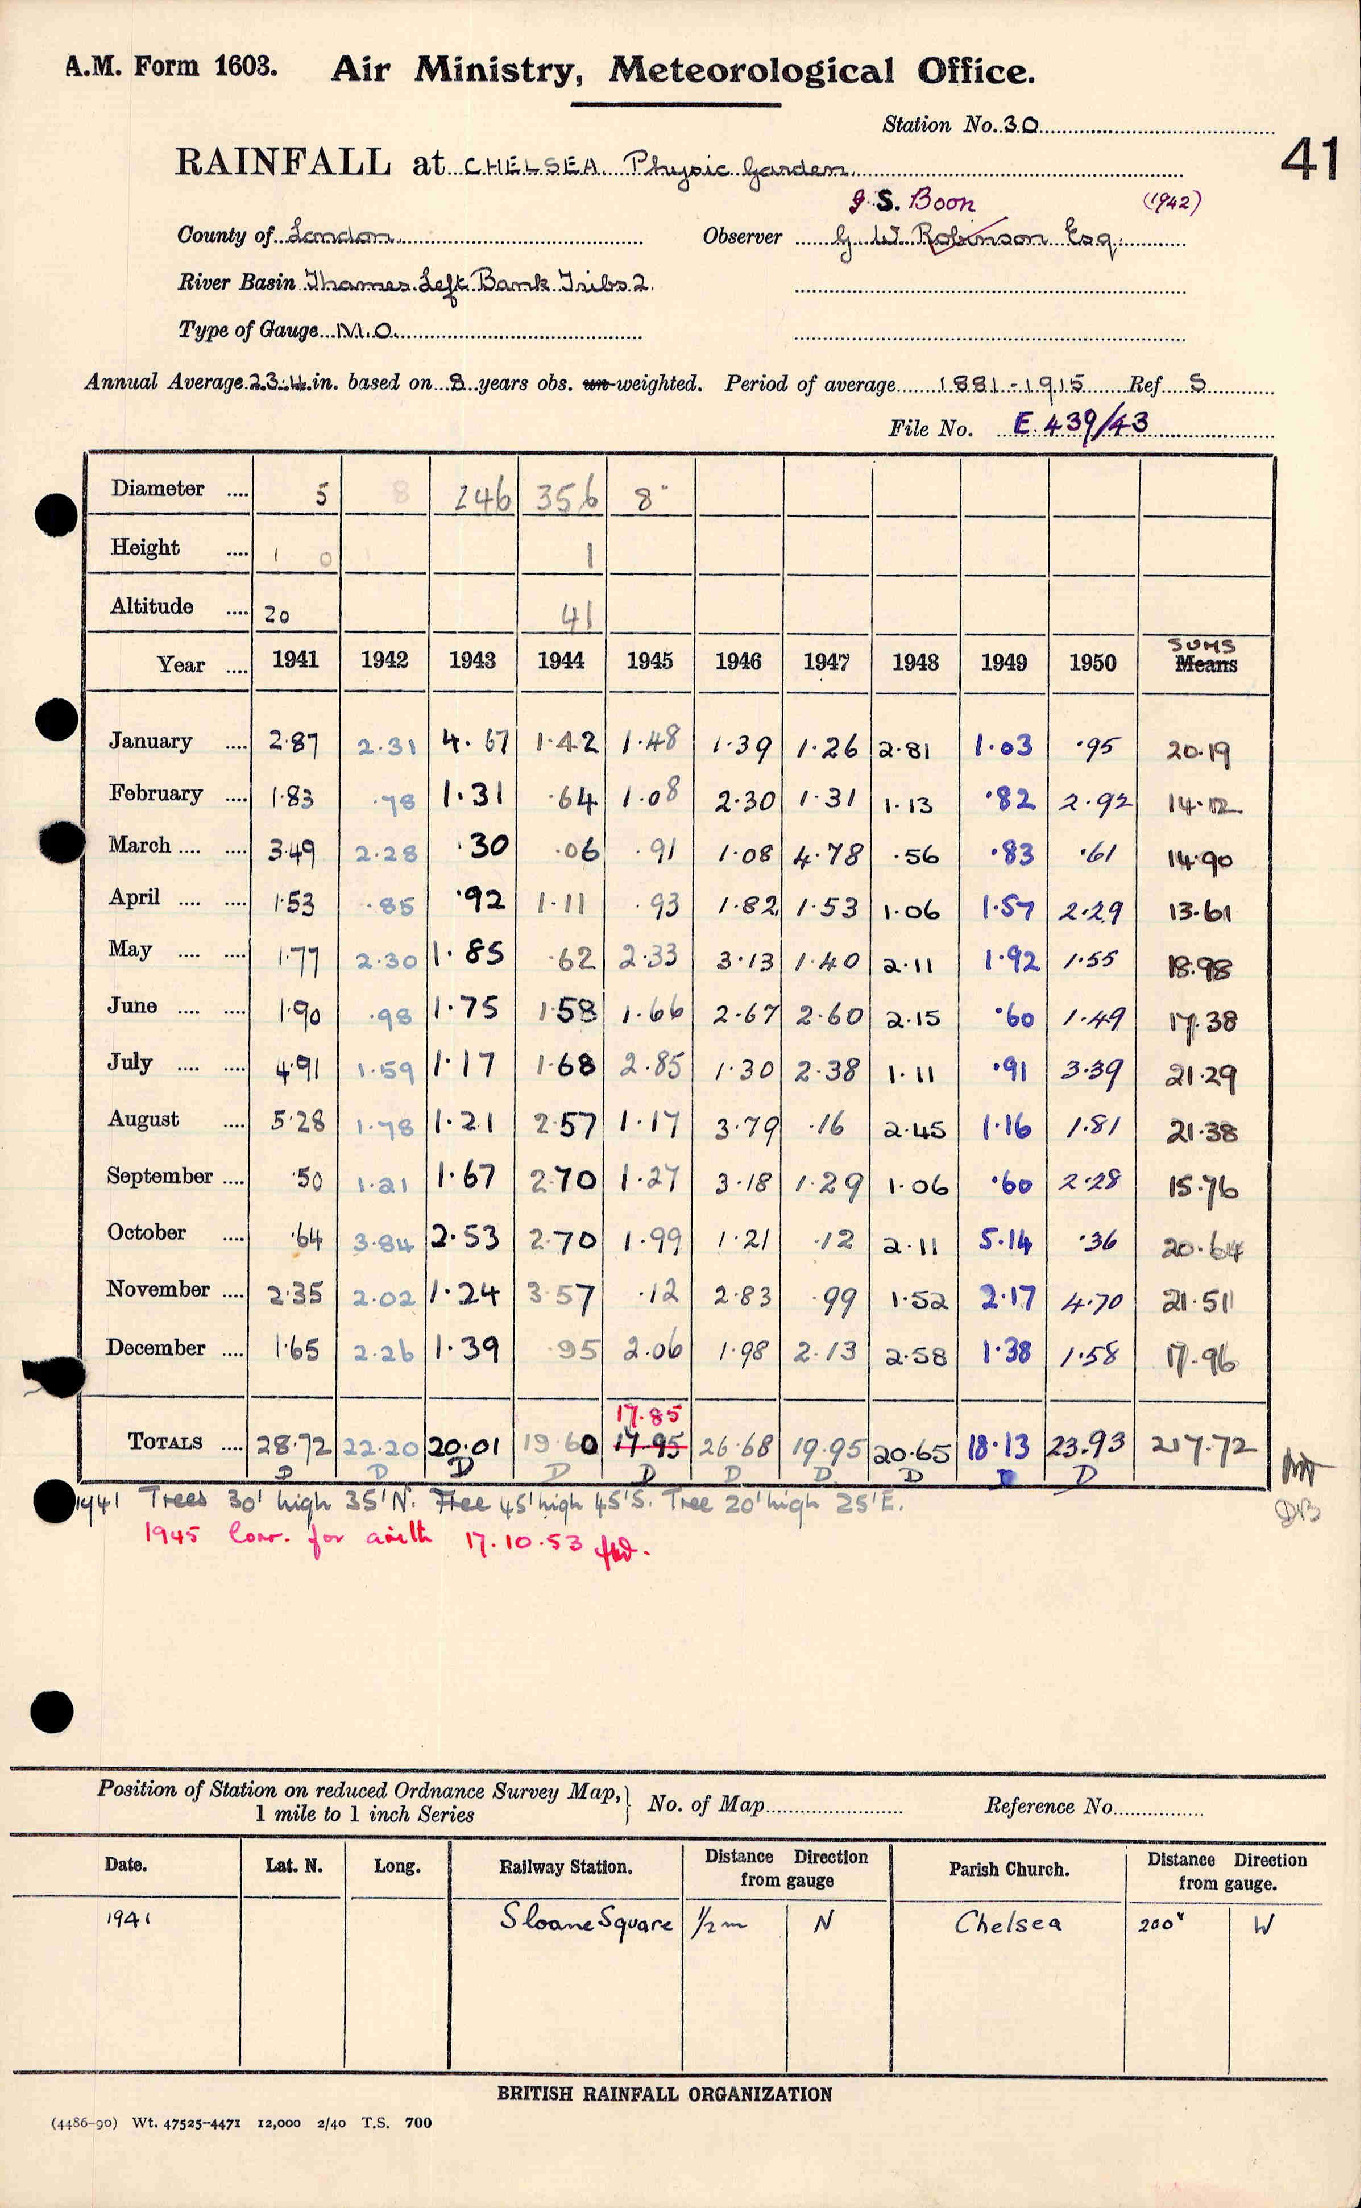 A.M. Form 1603. Air Ministry, Meteorological Office.
Station No. 30
41
RAINFALL at CHELSEA Physic Garden
J. S. Boon (1942)
County of London Observer G W Robinson Esq.
River Basin Thames Left Bank Tribs 2.
Type of Gauge M.O.
Annual Average 23.4 in. based on 8 years obs. un-weighted. Period of average 1881-1915 Ref S
File No. E 439/43
Diameter .... 5 8 246 356 8"
Height .... 1 0 1
Altitude .... 20 41
SUMS
Year .... 1941 1942 1943 1944 1945 1946 1947 1948 1949 1950 Means
January .... 2.87 2.31 4.67 1.42 1.48 1.39 1.26 2.81 1.03 .95 20.19
February .... 1.83 .78 1.31 .64 1.08 2.30 1.31 1.13 .82 2.92 14.12
March .... .... 3.49 2.28 .30 .06 .91 1.08 4.78 .56 .83 .61 14.90
April .... .... 1.53 .85 .92 1.11 .93 1.82 1.53 1.06 1.57 2.29 13.61
May .... .... 1.77 2.30 1.85 .62 2.33 3.13 1.40 2.11 1.92 1.55 18.98
June .... .... 1.90 .98 1.75 1.58 1.66 2.67 2.60 2.15 .60 1.49 17.38
July .... .... 4.91 1.59 1.17 1.68 2.85 1.30 2.38 1.11 .91 3.39 21.29
August .... 5.28 1.78 1.21 2.57 1.17 3.79 .16 2.45 1.16 1.81 21.38
September .... .50 1.21 1.67 2.70 1.27 3.18 1.29 1.06 .60 2.28 15.76
October .... .64 3.84 2.53 2.70 1.99 1.21 .12 2.11 5.14 .36 20.64
November .... 2.35 2.02 1.24 3.57 .12 2.83 .99 1.52 2.17 4.70 21.51
December .... 1.65 2.26 1.39 .95 2.06 1.98 2.13 2.58 1.38 1.58 17.96
17.85
TOTALS .... 28.72 22.20 20.01 19.60 17.95 26.68 19.95 20.65 18.13 23.93 217.72
D D D D D D D D D D
1941 Trees 30' high 35'N. Tree 45' high 45'S. Tree 20' high 25'E.
DB
1945 Corr. for arith 17.10.53
Position of Station on reduced Ordnance Survey Map, 1 mile to 1 inch Series No. of Map Reference No.
Date. Lat. N. Long. Railway Station. Distance Direction from gauge Parish Church. Distance Direction from gauge.
1941 Sloane Square 1/2 m N Chelsea 200ʸ W
BRITISH RAINFALL ORGANIZATION
(4486-90) Wt. 47525-4471 12,000 2/40 T.S. 700